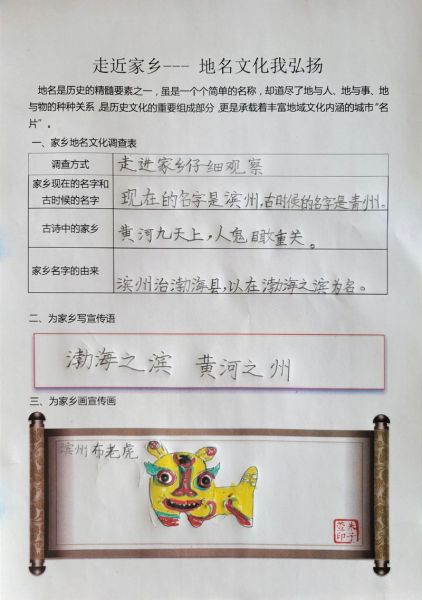 走近家乡--- 地名文化我弘扬
地名是历史的精髓要素之一，虽是一个个简单的名称，却道尽了地与人、地与事、地
与物的种种关系，是历史文化的重要组成部分，更是承载着丰富地域文化内涵的城市“名
片”。
一、家乡地名文化调查表
调查方式 走进家乡仔细观察
家乡现在的名字和
古时候的名字
现在的名字是滨州，古时候的名字是青州。
古诗中的家乡 黄河九天上，人鬼瞰重关。
家乡名字的由来 滨州治渤海县，以在渤海之滨为名。
二、为家乡写宣传语
渤海之滨 黄河之州
三、为家乡画宣传画
滨州布老虎